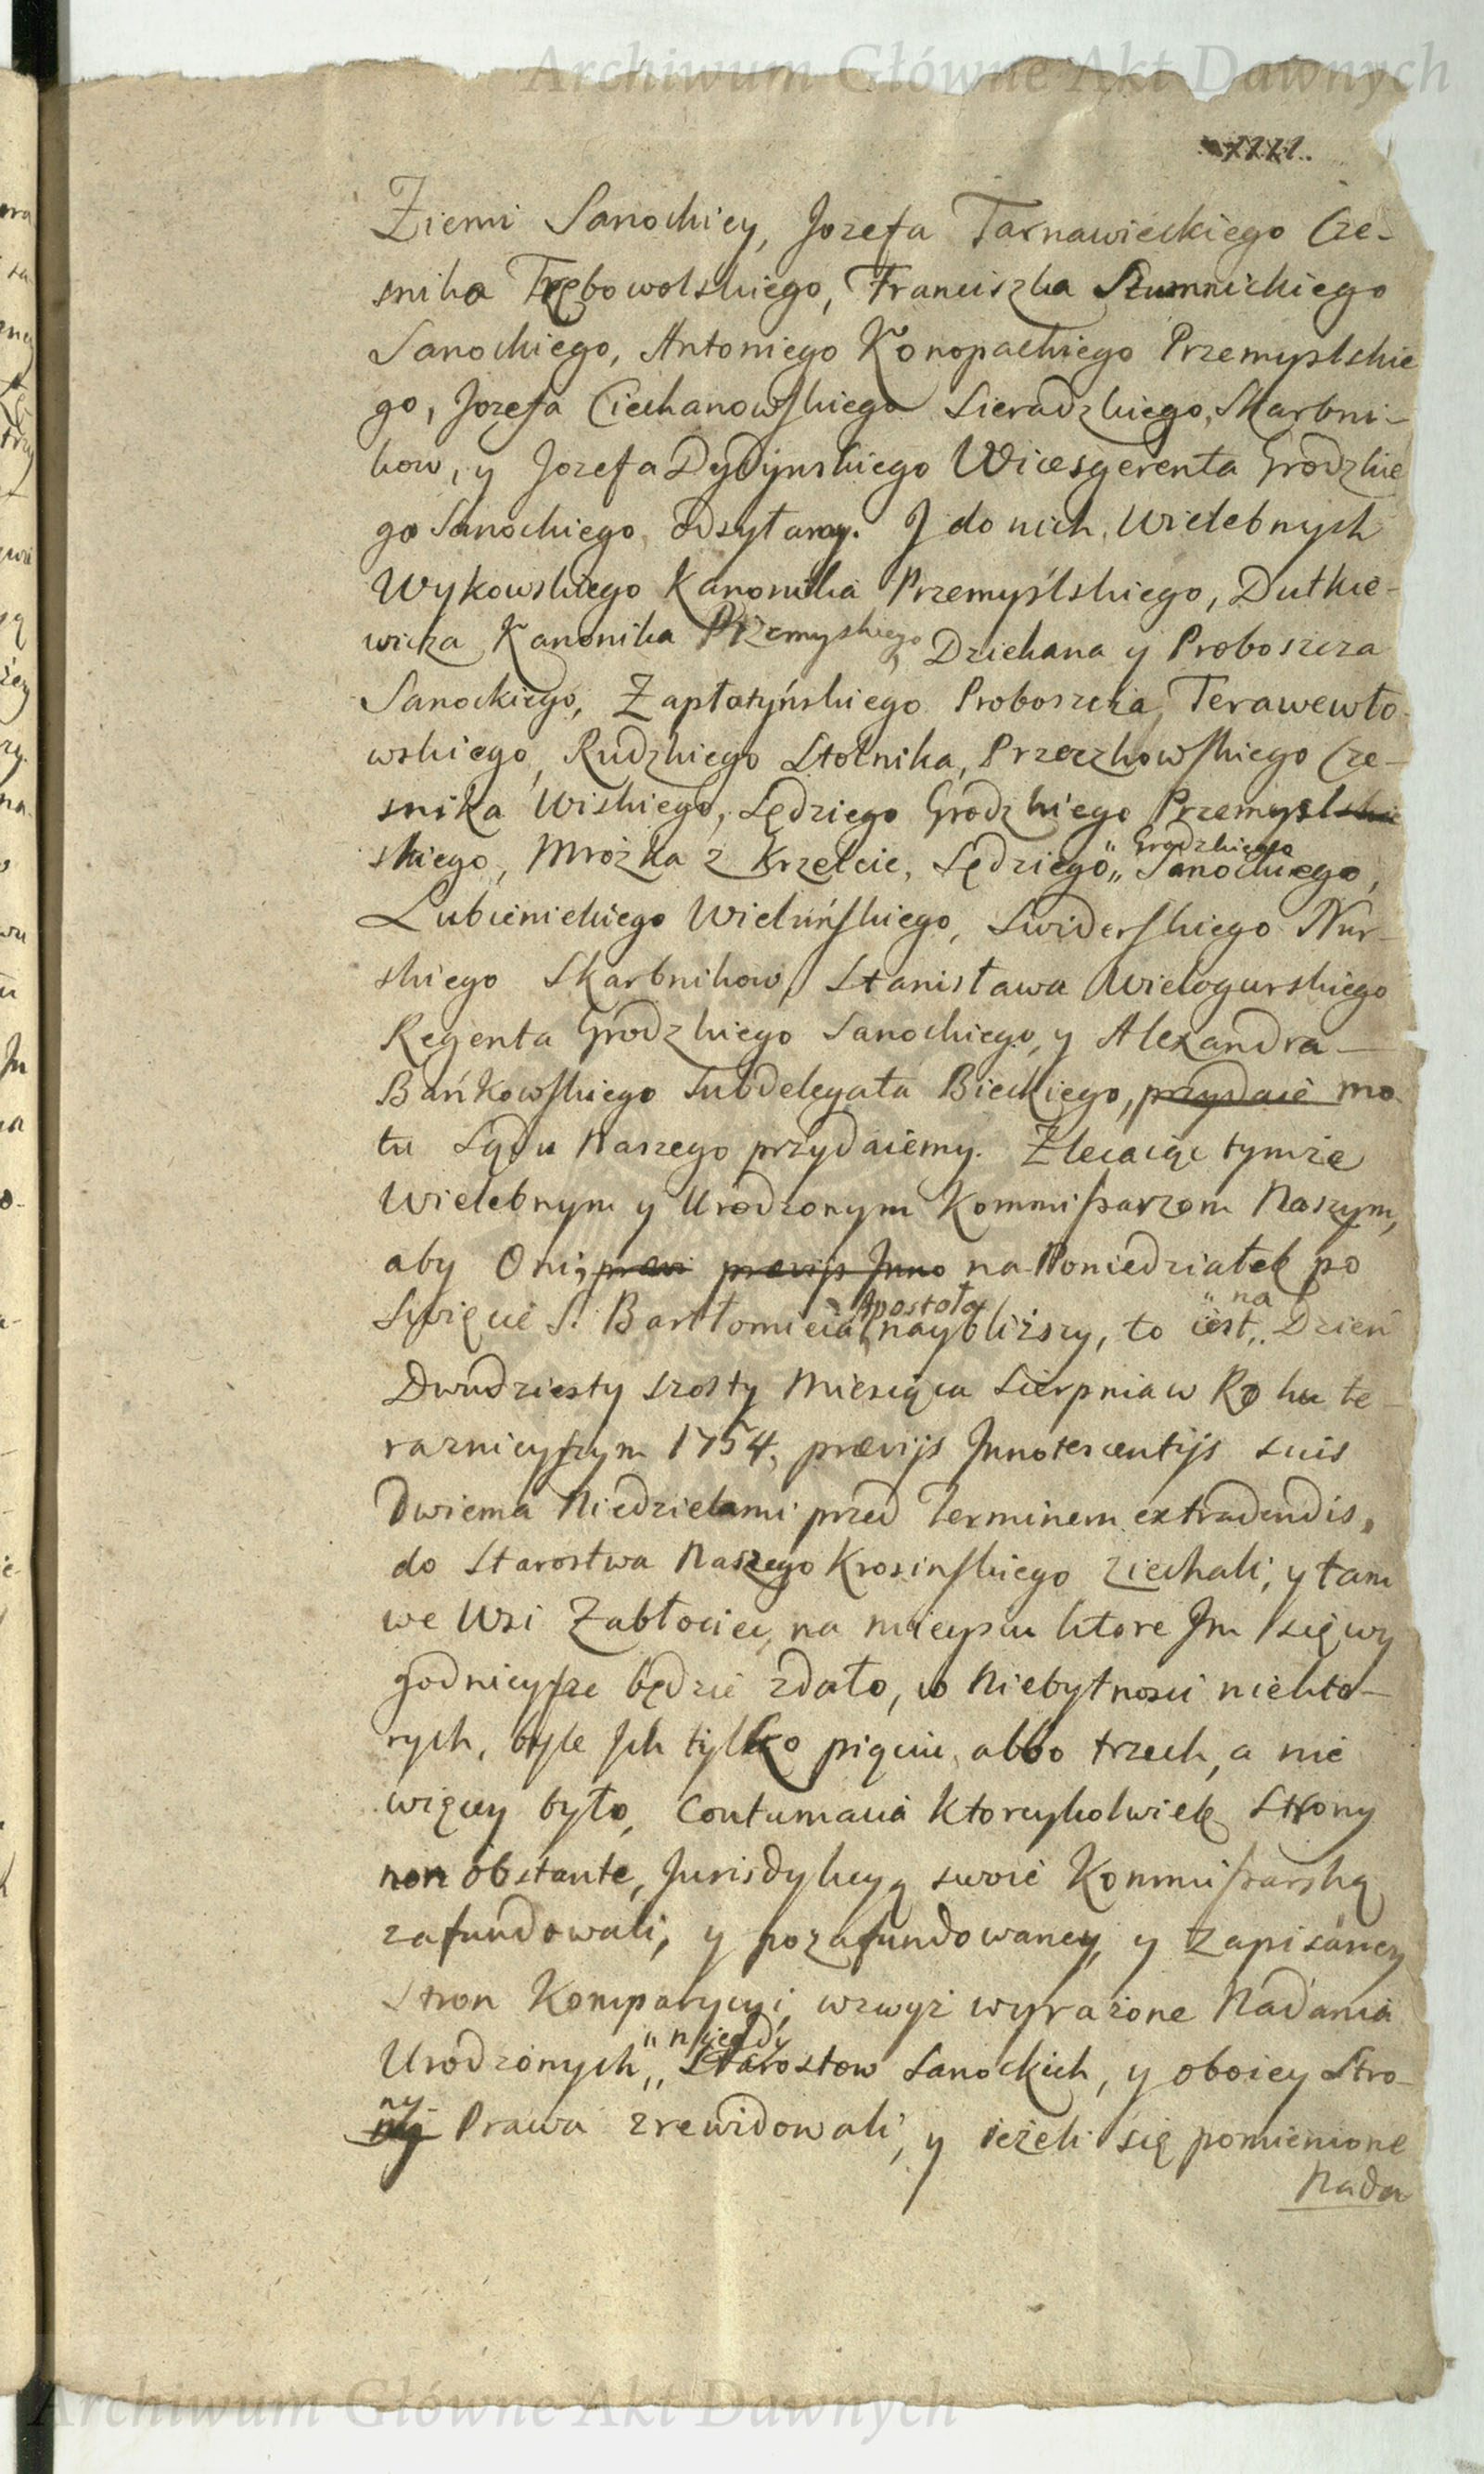 Archiwum Główne Akt Dawnych
Ziemi Sanockiey, Jozefa Tarnawieckiego Cze-
snika Trębowolskiego, Franciszka Szumnickiego
Sanockiego, Antoniego Konopackiego Przemyslskie
go, Jozefa Ciechanowskiego Sieradzkiego, Skarbni-
kow, y Jozefa Dydynskiego Wicesgerenta Grodzkie
go Sanockiego, odsyłamy. J do nich, Wielebnych
Wykowskiego Kanonika Przemyślskiego, Dutkie-
wicza Kanonika Przemyskiego, Dziekana y Proboszcza
Sanockiego, Zapłatyńskiego Proboszcza, Terawewło-
wskiego, Rudzkiego Stolnika, Przeczkowskiego Cze-
snika Wiskiego, Sędziego Grodzkiego Przemyslskie
skiego, Mrozka z Krzelcic, Sędziego „ Grodzkiego „ Sanockiego,
Lubienieckiego Wieluńskiego, Swiderskiego Nur-
skiego Skarbnikow, Stanisława Wielogurskiego
Regenta Grodzkiego Sanockiego, y Alexandra
Bańkowskiego Subdelegata Bieckiego, przydaie mo-
tu Sądu Naszego przydaiemy. Zlecaiąc tymże
Wielebnym y Urodzonym Kommissarzom Naszym,
aby Oni, prævi prævijs Inno na Poniedziałek po
Swięcie S. Bartłomieia Apostoła naybliższy, to iest „ na „ Dzien
Dwudziesty szosty Miesiąca Sierpnia w Roku te-
raznieyszym 1754, prævijs Innotescentijs suis
Dwiema Niedzielami przed Terminem extradendis,
do Starostwa Naszego Krosinskiego ziechali, y tam
we Wsi Zabłociec, na mieyscu ktore Jm się wy
godnieysze będzie zdało, w Niebytnosci niekto-
rych, byle Jch tylko pięciu, albo trzech, a nie
więcey było, Contumacia Ktoreykolwiek Strony
non obstante, Jurisdykcyą swoię Kommissarską
zafundowali, y po zafundowaney, y zapisaney
Stron Komparycyi, wzwyż wyrażone Nadania
Urodzonych „ niegdy „ Starostow Sanockich, y oboiey Stro-
ny Prawa zrewidowali, y ieżeli się pomienione
Nada-
Archiwum Główne Akt Dawnych